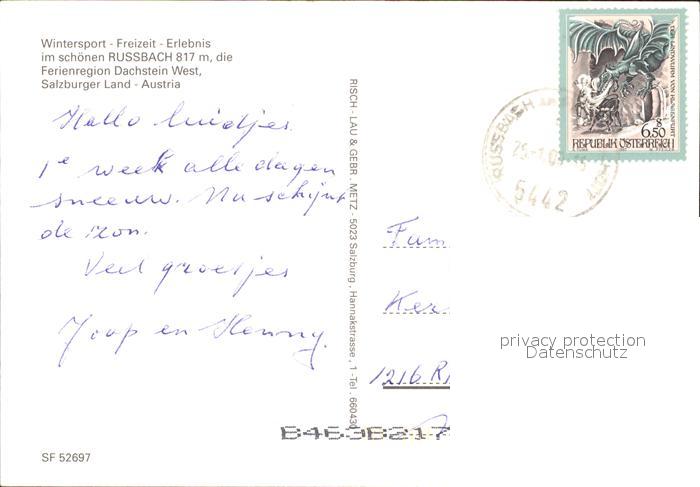 Wintersport - Freizeit - Erlebnis
im schönen RUSSBACH 817 m, die
Ferienregion Dachstein West,
Salzburger Land - Austria
Hallo luidjes
1e week alle dagen
sneeuw. Nu schijnt
de zon.
Veel groetjes
Joop en Henny.
SF 52697
RISCH - LAU & GEBR. METZ - 5023 Salzburg, Hannakstrasse, 1 -Tel. 660430
DER LINDWURM VON KLAGENFURT
S
6.50
REPUBLIK ÖSTERREICH
RUSSBACH
5442
Fam
Ker
1216 R
privacy protection
Datenschutz
B463B217